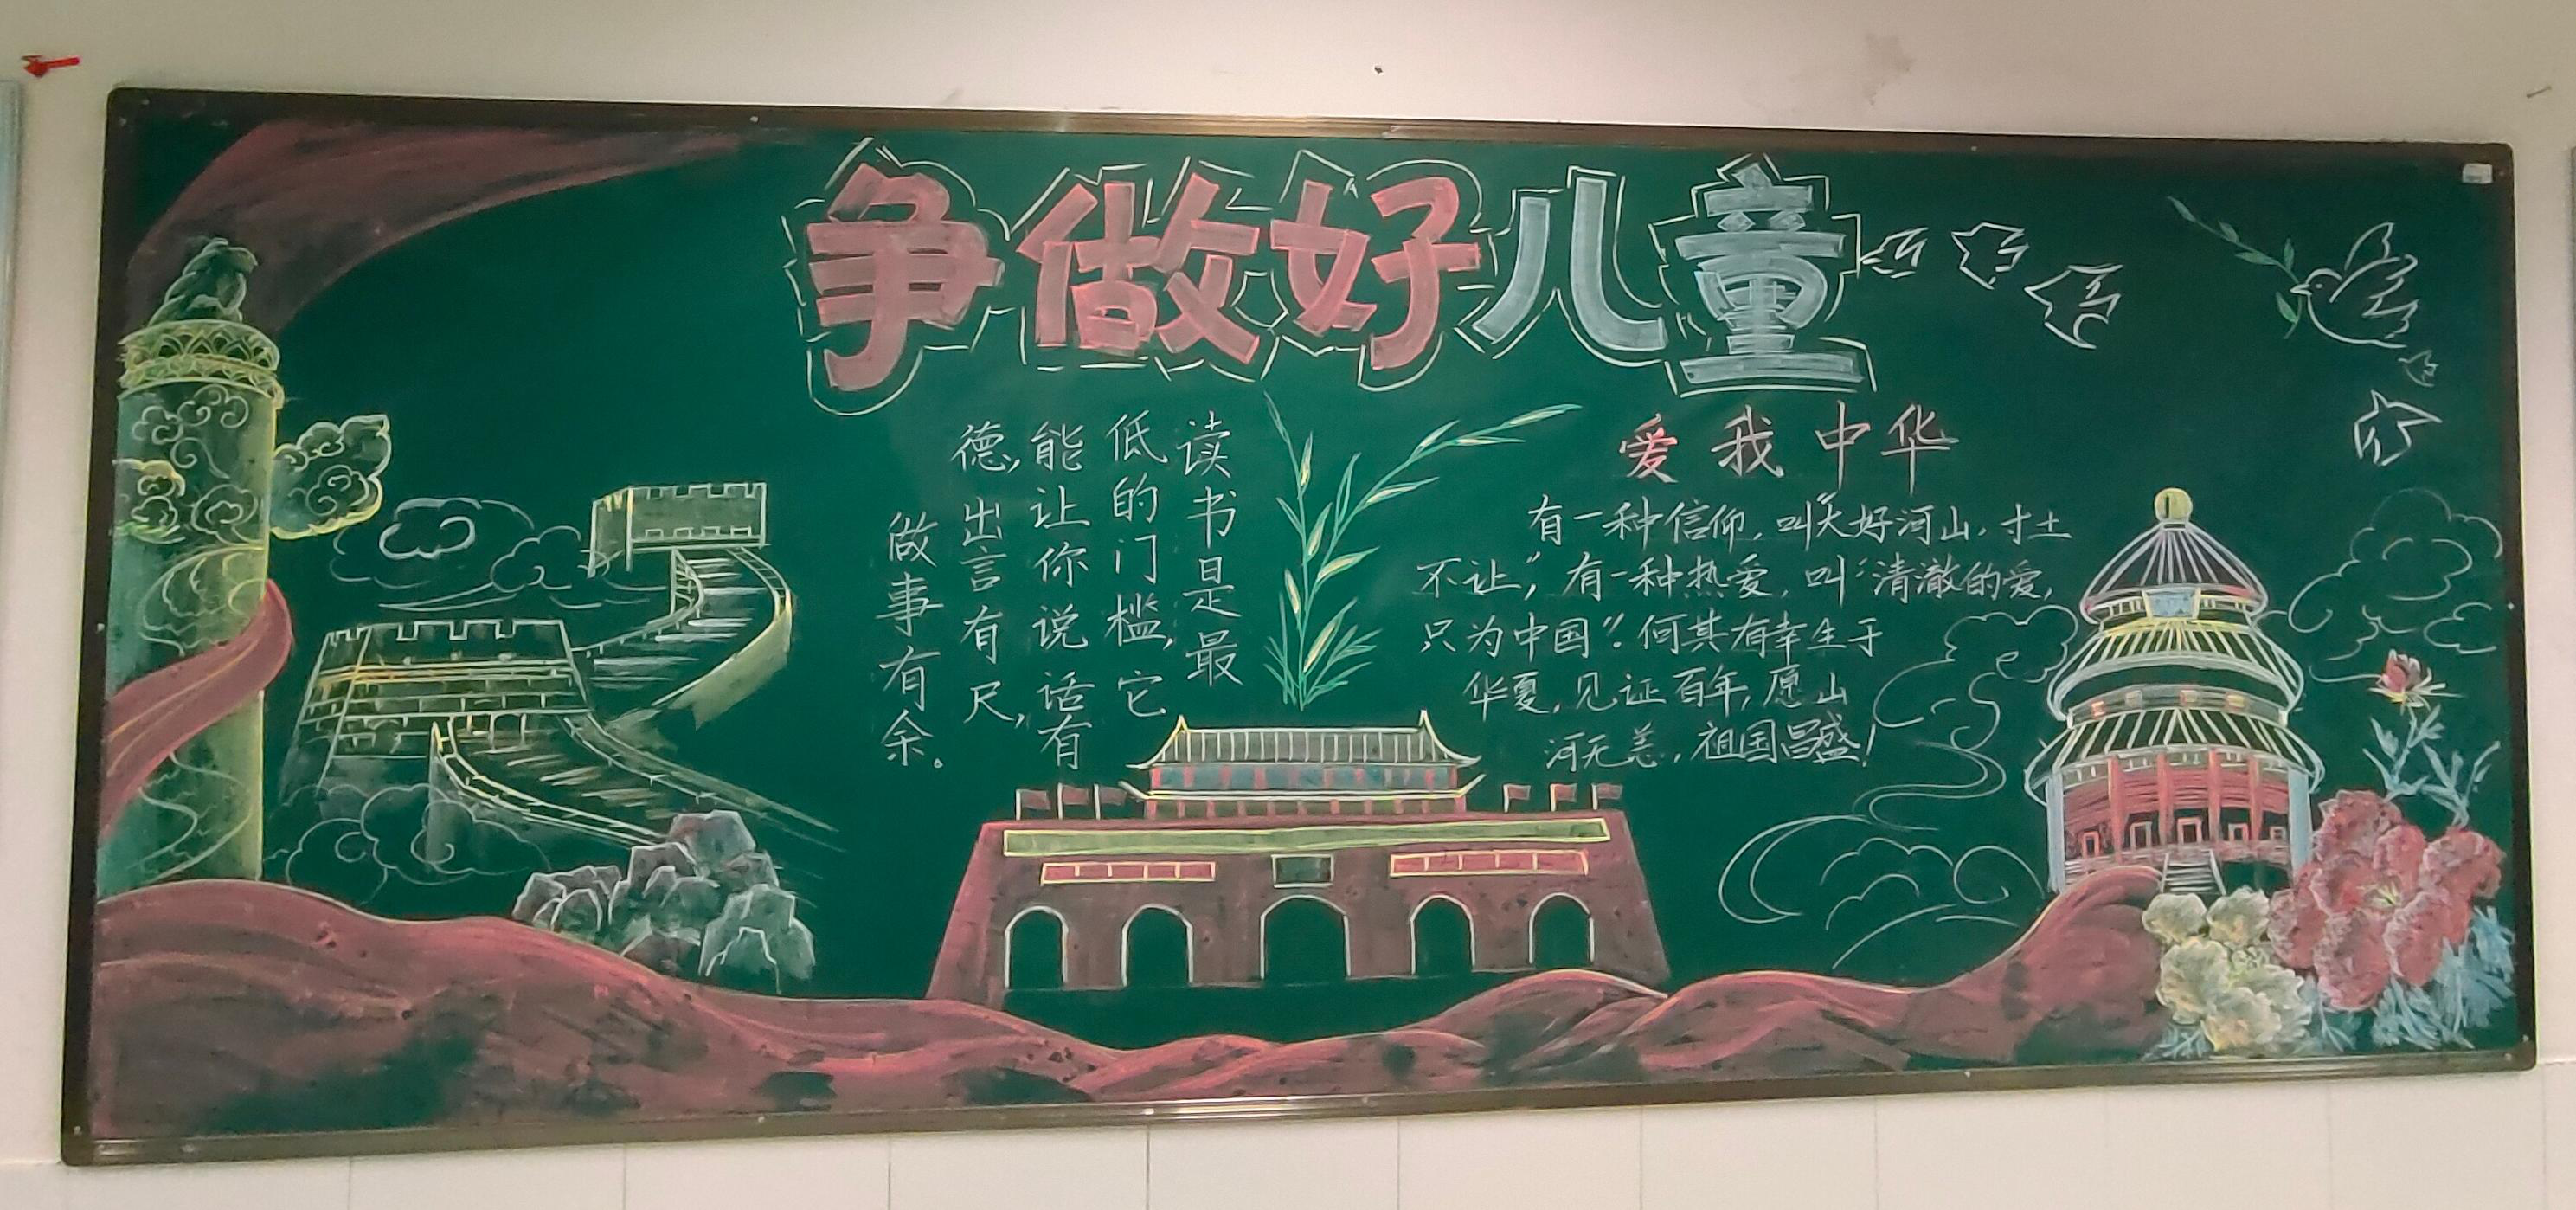 争做好儿童
读书是最
低的门槛,它
能让你说话有
德,出言有尺,
做事有余。
爱我中华
有一种信仰,叫"大好河山,寸土
不让",有一种热爱,叫"清澈的爱,
只为中国"。何其有幸生于
华夏,见证百年,愿山
河无恙,祖国昌盛!